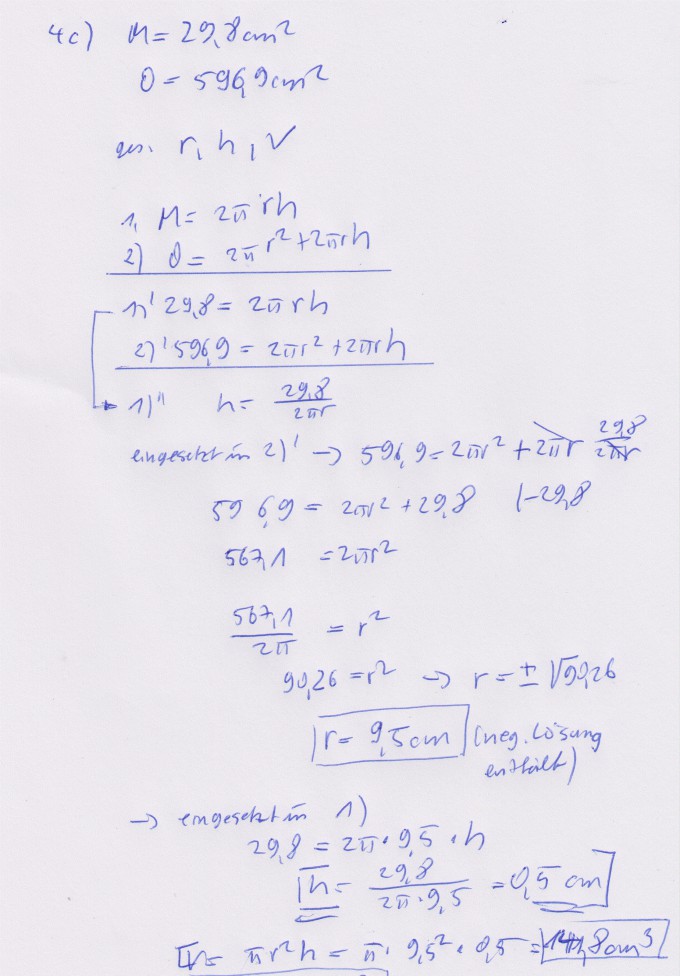 4c) M = 29,8cm²
O = 596,9cm²
ges. r, h, V
1, M = 2π rh
2) O = 2πr² + 2πrh
1)' 29,8 = 2πrh
2)' 596,9 = 2πr² + 2πrh
1)'' h = 29,8 / 2πr
eingesetzt in 2)' → 596,9 = 2πr² + 2πr 29,8 / 2πr
596,9 = 2πr² + 29,8 |-29,8
567,1 = 2πr²
567,1 / 2π = r²
90,26 = r² → r = ± √90,26
r = 9,5cm (neg. Lösung
enthält)
→ eingesetzt in 1)
29,8 = 2π · 9,5 · h
h = 29,8 / 2π · 9,5 = 0,5 cm
V = πr²h = π · 9,5² · 0,5 = 8cm³